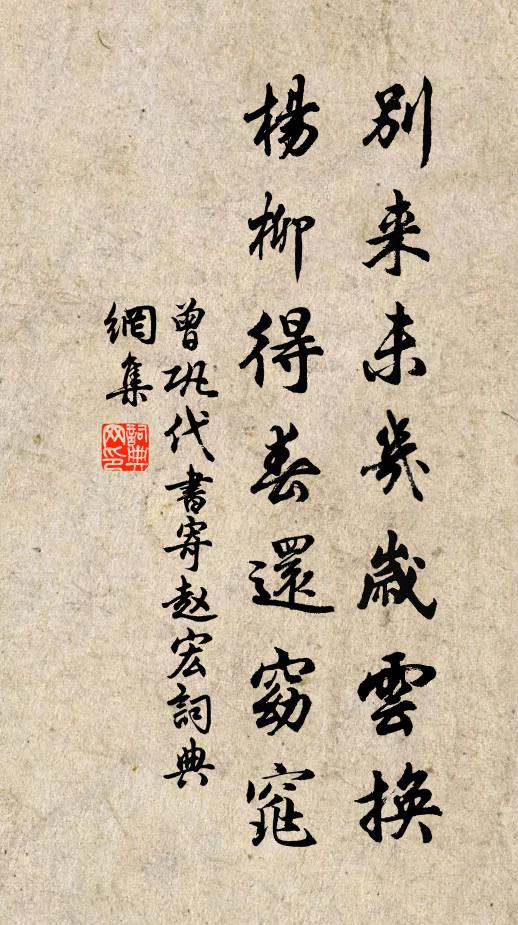 別来未幾歲雲換
楊柳得春還窈窕
曾巩代書寄赵宏詞典
網集
詞典
网印